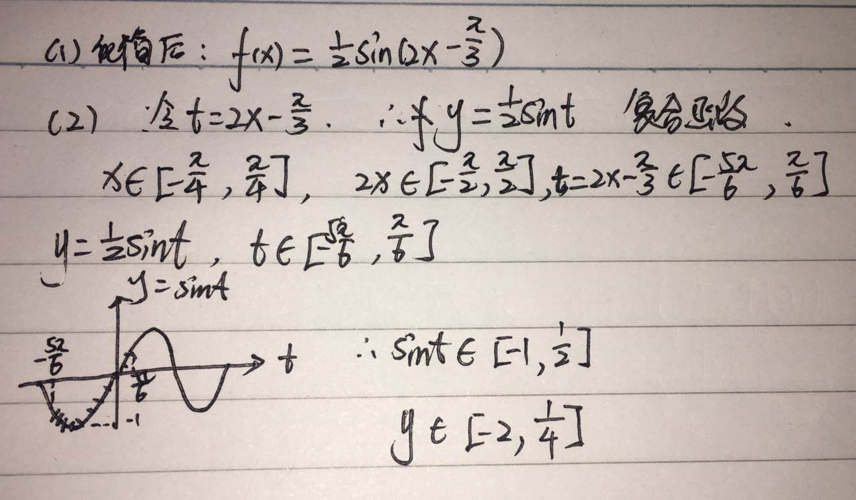 (1) 化简后: f(x) = 1/2 sin(2x - π/3)
(2) 令 t = 2x - π/3. ∴ y = 1/2 sint 复合函数.
x ∈ [-π/4, π/4], 2x ∈ [-π/2, π/2], t = 2x - π/3 ∈ [-5π/6, π/6]
y = 1/2 sint, t ∈ [-5π/6, π/6]
y = sint
-5π/6
π/6
t
-1
∴ sint ∈ [-1, 1/2]
y ∈ [-2, 1/4]